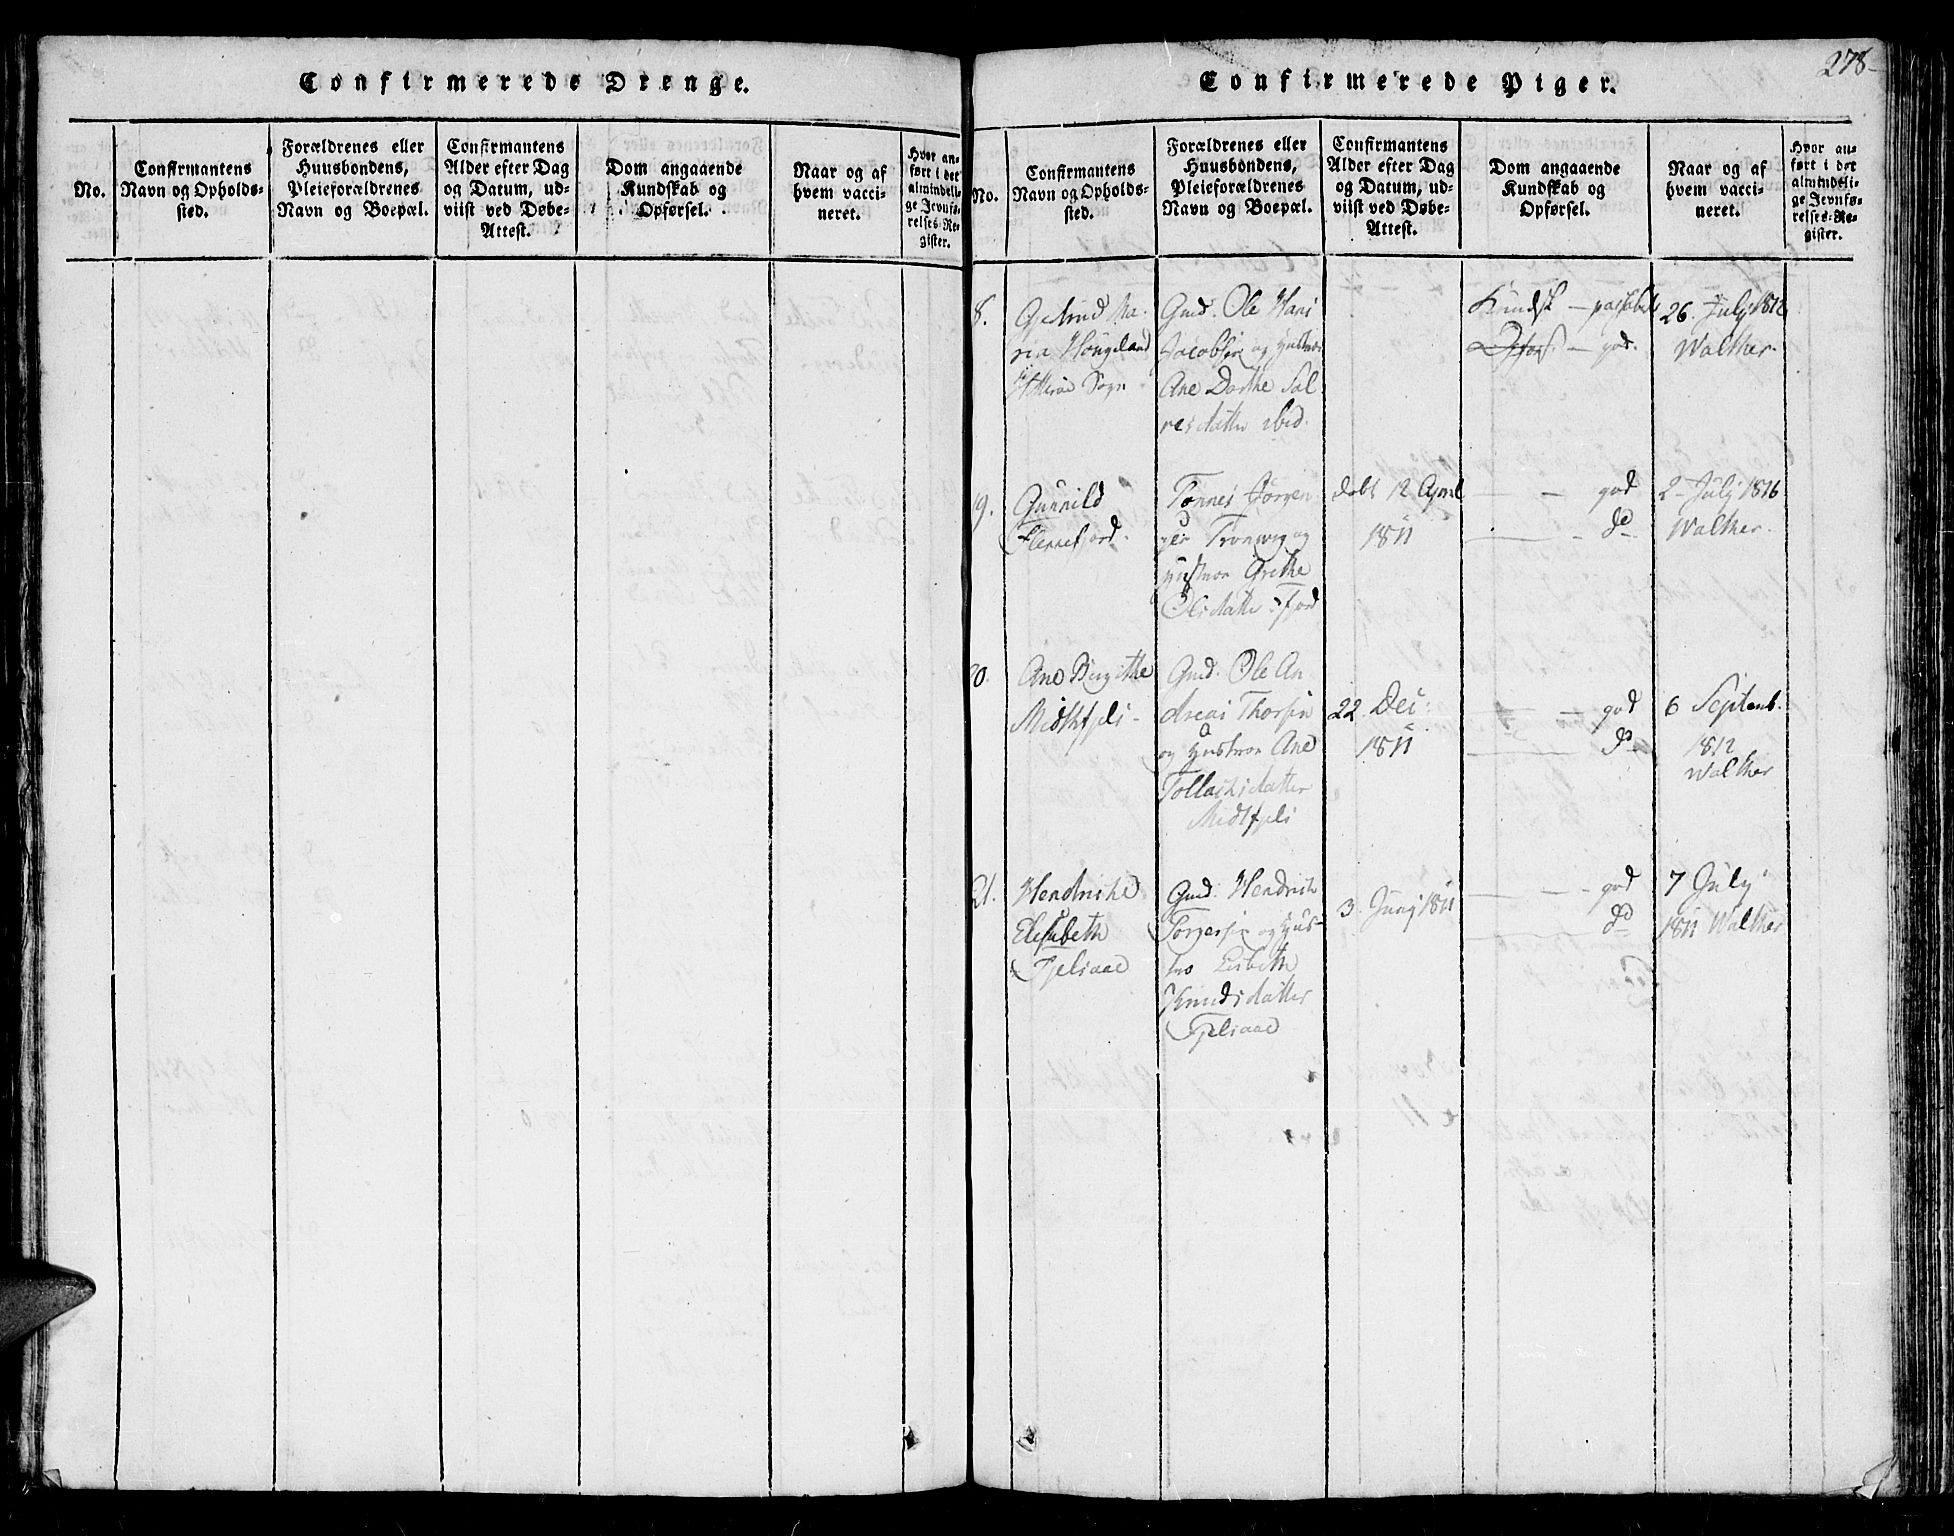 Confirmerede Drenge.
No.
Confirmantens
Navn og Opholds-
sted.
Forældrenes eller
Huusbondens,
Pleieforældrenes
Navn og Boepæl.
Confirmantens
Alder efter Dag
og Datum, ud-
viist ved Døbe-
Attest.
Dom angaaende
Kundskab og
Opførsel.
Naar og af
hvem vacci-
neret.
Hvor an-
ført i det
almindeli-
ge Jevnfø-
relses-Re-
gister.
278
Confirmerede Piger.
No.
Confirmantens
Navn og Opholds-
sted.
Forældrenes eller
Huusbondens,
Pleieforældrenes
Navn og Boepæl.
Confirmantens
Alder efter Dag
og Datum, ud-
viist ved Døbe-
Attest.
Dom angaaende
Kundskab og
Opførsel.
Naar og af
hvem vacci-
neret.
Hvor an-
ført i det
almindeli-
ge Jevnfø-
relses-Re-
gister.
8.
Gedrud Ma-
ria Hougeland
Hitterøe Sogn
Gmd. Ole Hans
Jacobsen og Hustroe
Ane Dorthe Sal
ves datter ibid.
Kundsk – passabel
Opførs. – god.
26. July 1812
Walther.
9.
Gunnild
Flekkefjord.
Tønnes Jørgen
sen og
Hustroe Grethe
Olsdatter Fjord
døbt 12 April
1811
— — god
— — do
2 July 1816
Walther.
20.
Ane Birgithe
Midtfjeli-
Gmd. Ole An
dreas Thorsen
og Hustroe Ane
Tollachsdatter
Midtfjeli
22. Dec:
1811
— — god
— do
6 Septemb.
1812
Walther
21.
Hendrikke
Elisabeth
Fjelsaae
Gmd. Hendrich
Torgersen og Hus-
troe Lisbeth
Knudsdatter
Fjelsaae
3. Junj 1811
— — god
— do
7 July
1811 Walther